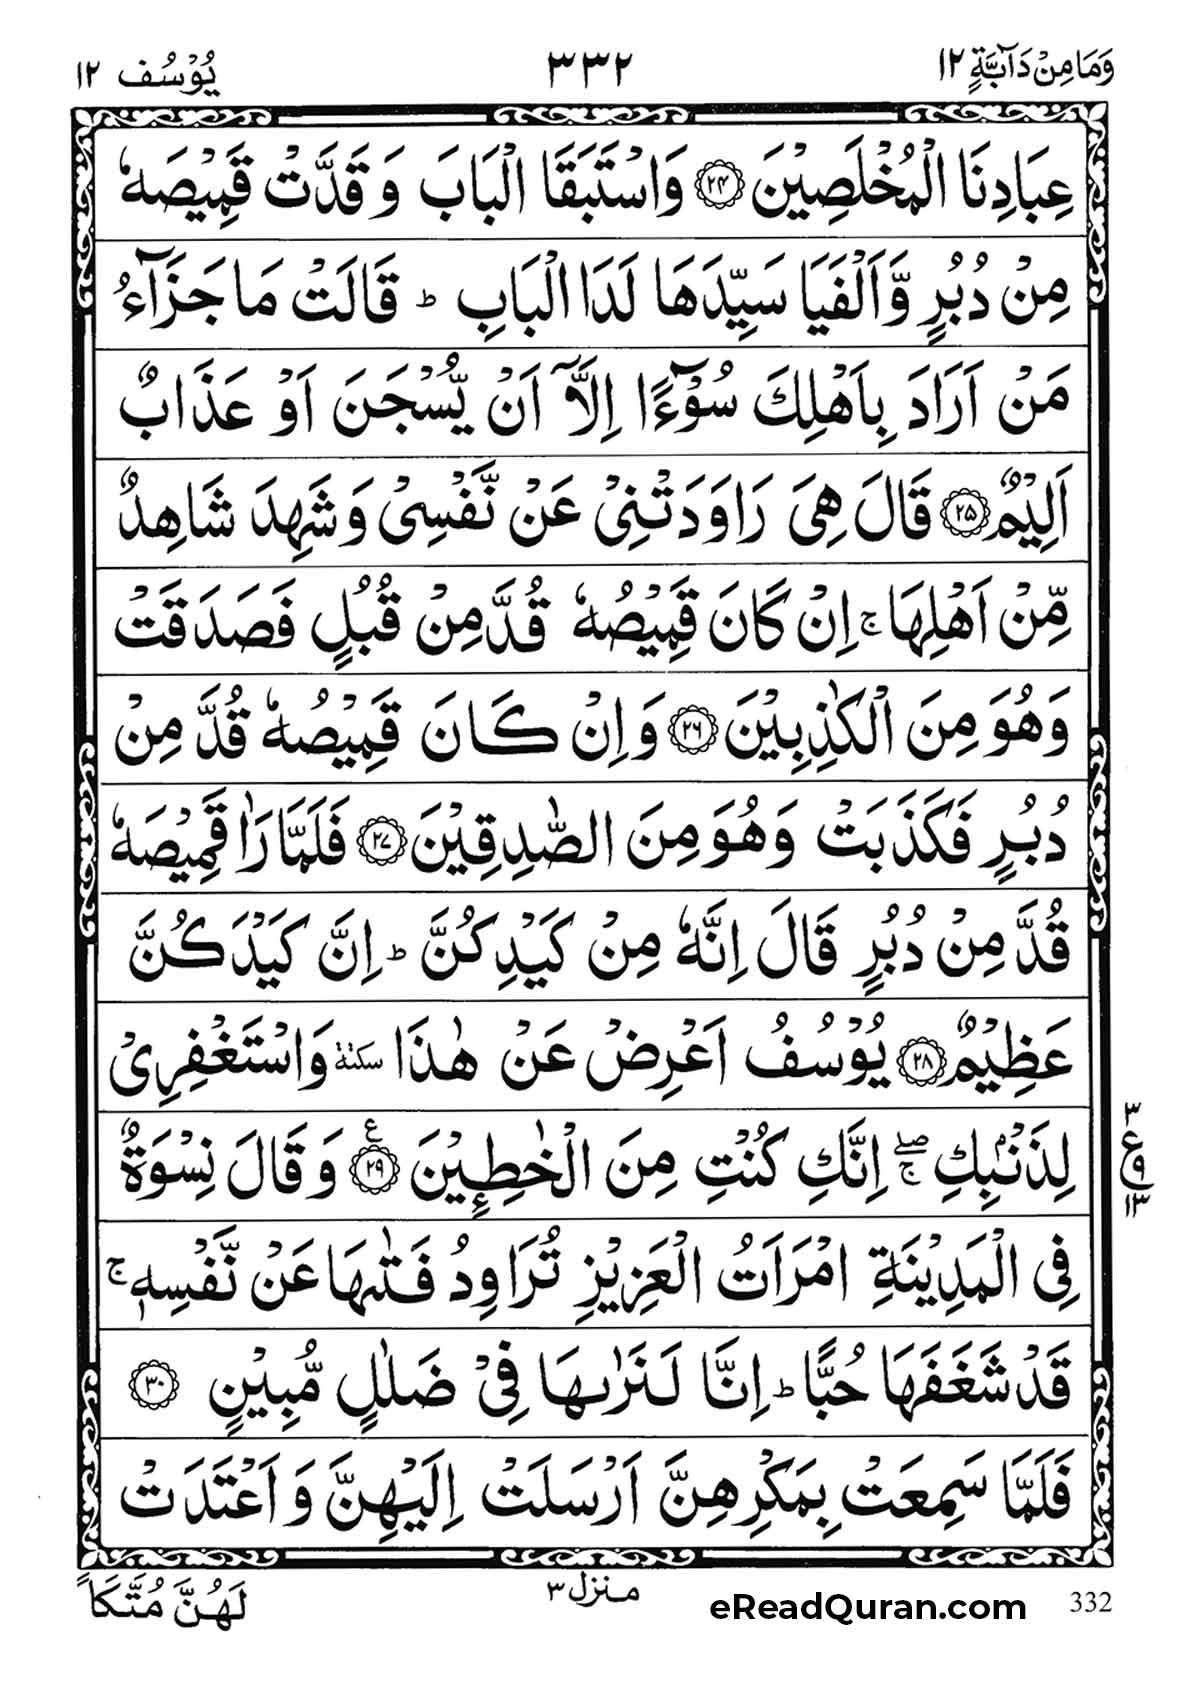 وَمَا مِنْ دَآبَّةٍ ١٢ ٣٣٢ يُوْسُف ١٢
عِبَادِنَا الْمُخْلَصِيْنَ ۝٢٤ وَاسْتَبَقَا الْبَابَ وَ قَدَّتْ قَمِيْصَهٗ
مِنْ دُبُرٍ وَّاَلْفَيَا سَيِّدَهَا لَدَا الْبَابِ ؕ قَالَتْ مَا جَزَآءُ
مَنْ اَرَادَ بِاَهْلِكَ سُوْٓءًا اِلَّاۤ اَنْ يُّسْجَنَ اَوْ عَذَابٌ
اَلِيْمٌ ۝٢٥ قَالَ هِىَ رَاوَدَتْنِىْ عَنْ نَّفْسِىْ وَشَهِدَ شَاهِدٌ
مِّنْ اَهْلِهَا ۚ اِنْ كَانَ قَمِيْصُهٗ قُدَّ مِنْ قُبُلٍ فَصَدَقَتْ
وَهُوَ مِنَ الْكٰذِبِيْنَ ۝٢٦ وَاِنْ كَانَ قَمِيْصُهٗ قُدَّ مِنْ
دُبُرٍ فَكَذَبَتْ وَهُوَ مِنَ الصّٰدِقِيْنَ ۝٢٧ فَلَمَّا رَاٰ قَمِيْصَهٗ
قُدَّ مِنْ دُبُرٍ قَالَ اِنَّهٗ مِنْ كَيْدِكُنَّ ؕ اِنَّ كَيْدَكُنَّ
عَظِيْمٌ ۝٢٨ يُوْسُفُ اَعْرِضْ عَنْ هٰذَا سكتة وَاسْتَغْفِرِىْ
لِذَنْۢبِكِ ۖۚ اِنَّكِ كُنْتِ مِنَ الْخٰطِـِٕيْنَ ۝٢٩ ع وَقَالَ نِسْوَةٌ
٣ ع ٩ ١٣
فِى الْمَدِيْنَةِ امْرَاَتُ الْعَزِيْزِ تُرَاوِدُ فَتٰٮهَا عَنْ نَّفْسِهٖ ۚ
قَدْ شَغَفَهَا حُبًّا ؕ اِنَّا لَـنَرٰٮهَا فِىْ ضَلٰلٍ مُّبِيْنٍ ۝٣٠
فَلَمَّا سَمِعَتْ بِمَكْرِهِنَّ اَرْسَلَتْ اِلَيْهِنَّ وَاَعْتَدَتْ
لَهُنَّ مُتَّكَاً منزل ٣ eReadQuran.com 332